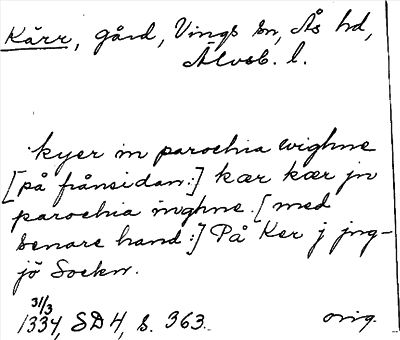 Kärr, gård, Vings sn, Ås hd,
Älvsb. l.
kyer in parochia wighne
[på frånsidan:] kær kær jn
parochia inghne. [med
senare hand:] På Ker j jng-
jö Sockn.
31/3
1334, SD 4, s. 363. orig.